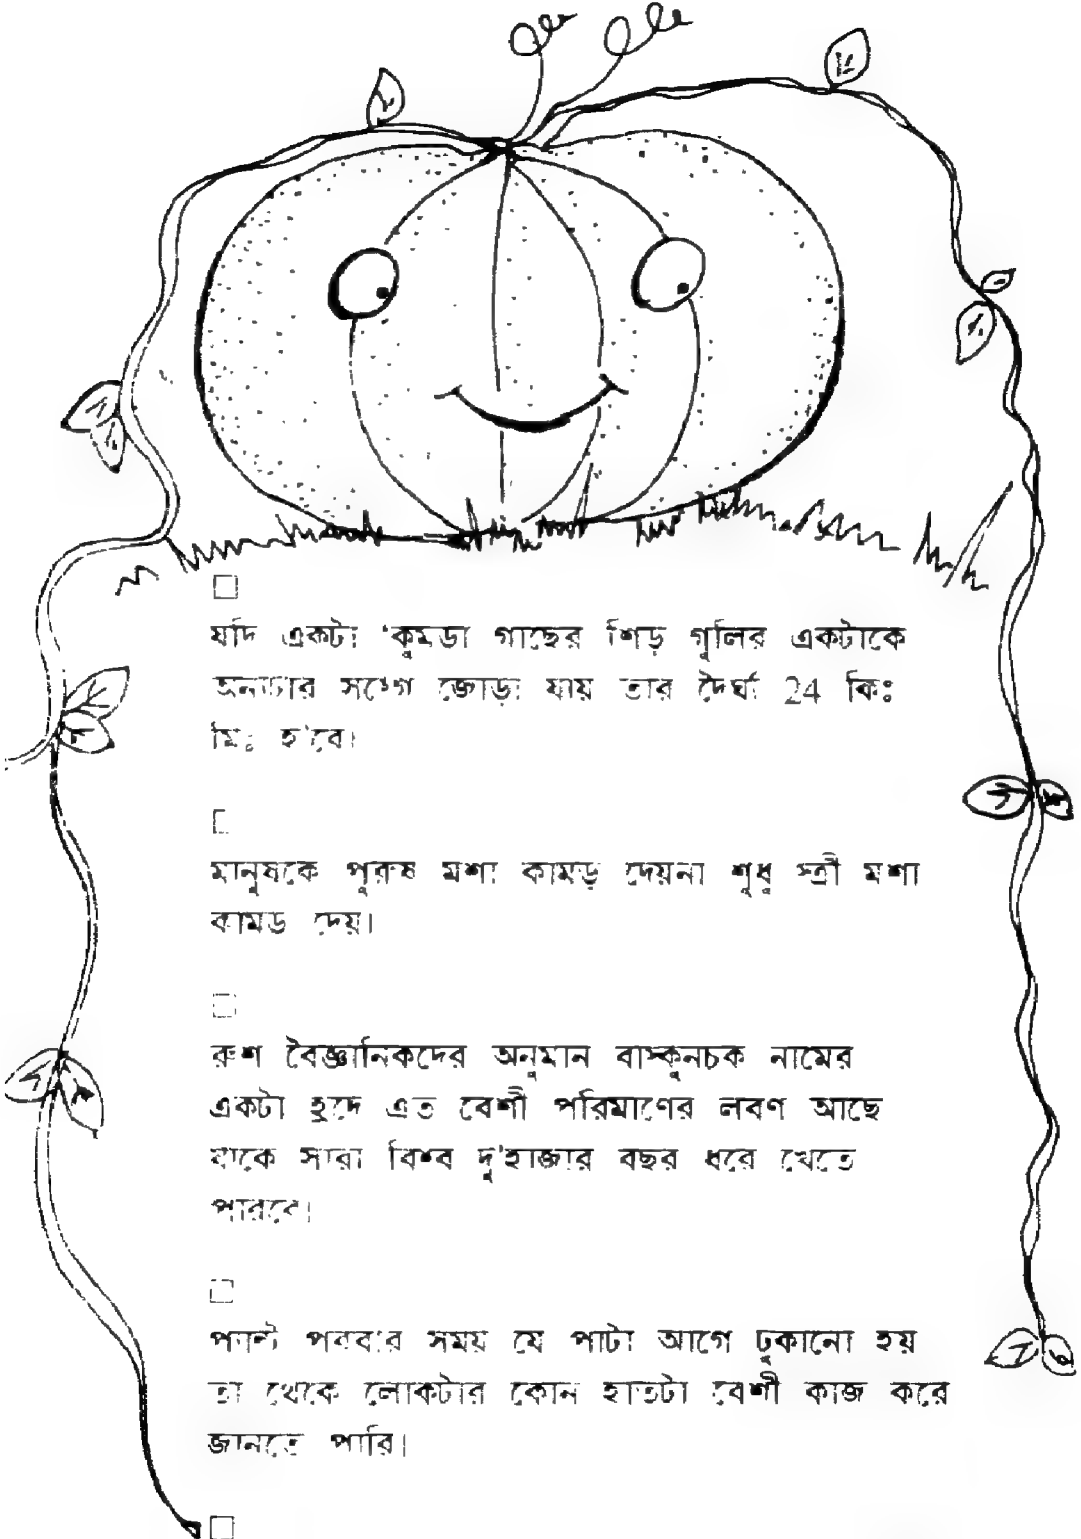 যদি একটা 'কুমড়া গাছের শিড় গুলির একটাকে
অন্যটার সংগে জোড়া যায় তার দৈর্ঘ্য 24 কিঃ
মিঃ হ'বে।
মানুষকে পুরুষ মশা কামড় দেয়না শুধু স্ত্রী মশা
কামড় দেয়।
রুশ বৈজ্ঞানিকদের অনুমান বাস্কুনচক নামের
একটা হ্রদে এত বেশী পরিমাণের লবণ আছে
যাকে সারা বিশ্ব দু'হাজার বছর ধরে খেতে
পারবে।
প্যান্ট পরবার সময় যে পাটা আগে ঢুকানো হয়
তা থেকে লোকটার কোন হাতটা বেশী কাজ করে
জানতে পারি।